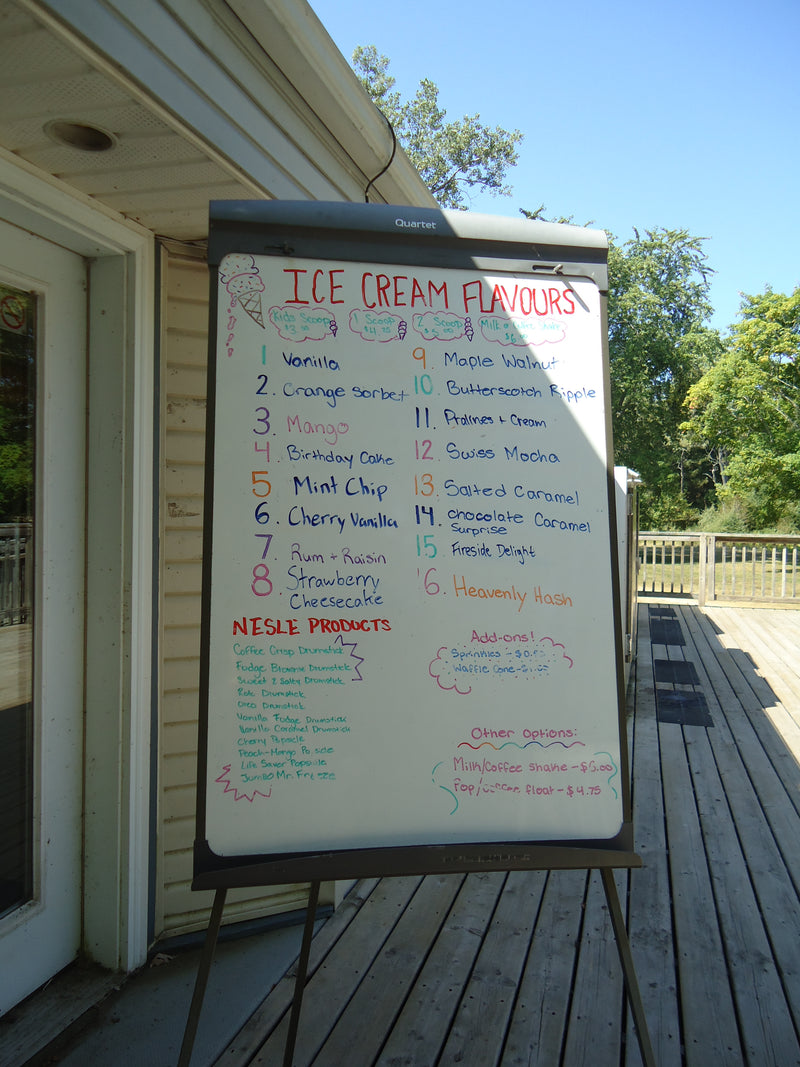 Quartet
ICE CREAM FLAVOURS
Kids Scoop
1 Scoop
2 Scoop
Milk
$3.00
$4.75
$6
1 Vanilla
2. Orange Sorbet
3. Mango
4. Birthday Cake
5 Mint Chip
6. Cherry Vanilla
7. Rum + Raisin
8. Strawberry
Cheesecake
9. Maple Walnut
10. Butterscotch Ripple
11. Pralines + Cream
12. Swiss Mocha
13. Salted Caramel
14. Chocolate Caramel
Surprise
15. Fireside Delight
16. Heavenly Hash
NESLE PRODUCTS
Coffee Crisp Drumstick
Fudge Brownie Drumstick
Sweet & Salty Drumstick
Rolo Drumstick
Oreo Drumstick
Vanilla Fudge Drumstick
Vanilla Caramel Drumstick
Cherry Popsicle
Peach-Mango Popsicle
Life Saver Popsicle
Jumbo Mr. Freeze
Add-ons!
Sprinkles - $0.
Waffle Cone -
Other Options:
Milk/Coffee Shake - $6.00
Pop/ float - $4.75